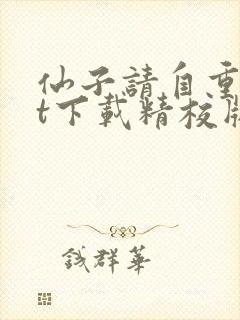 仙子請自重
t下載精校版
錢群華